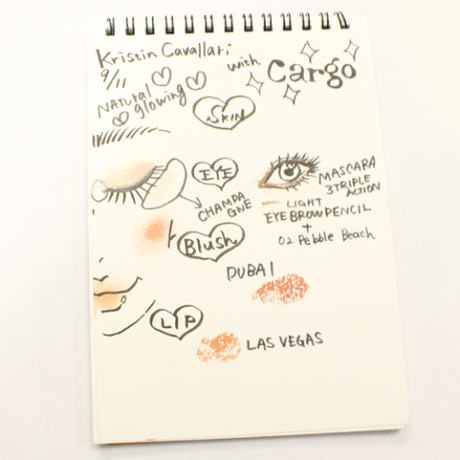 Kristin Cavallari
9/11
with Cargo
NATURAL
glowing
SKIN
EYE
CHAMPA
GNE
MASCARA
3 TRIPLE
ACTION
LIGHT
EYE BROW PENCIL
+
02 Pebble Beach
Blush
DUBAI
LIP
LAS VEGAS